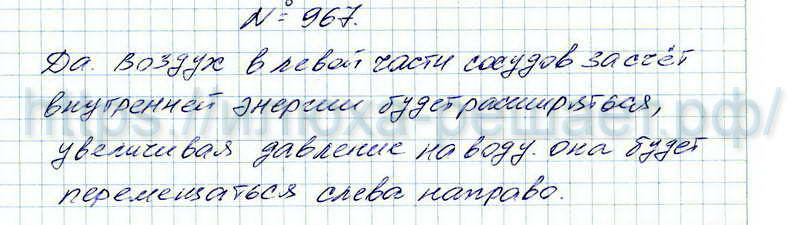 № 967.
Да. Воздух в левой части сосудов за счёт
внутренней энергии будет расширяться,
увеличивая давление на воду. она будет
перемещаться слева направо.